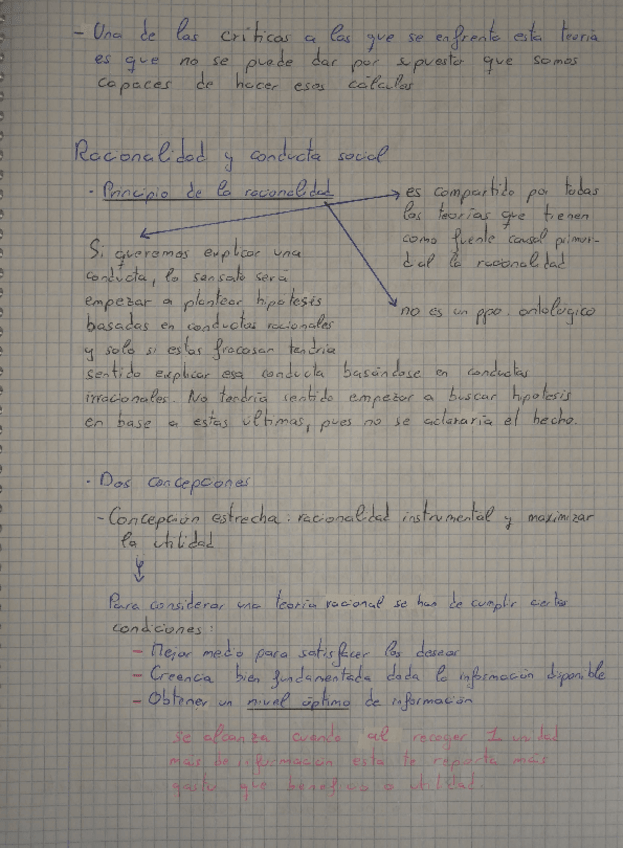 - Una de las críticas a las que se enfrenta esta teoría
es que no se puede dar por supuesto que somos
capaces de hacer esos cálculos
Racionalidad y conducta social
· Principio de la racionalidad
es compartido por todas
las teorías que tienen
como fuente causal primor-
dial la racionalidad
no es un ppo. ontológico
Si queremos explicar una
conducta, lo sensato será
empezar a plantear hipótesis
basadas en conductas racionales
y solo si estas fracasan tendría
sentido explicar esa conducta basándose en conductas
irracionales. No tendría sentido empezar a buscar hipótesis
en base a estas últimas, pues no se aclararía el hecho.
· Dos concepciones
- Concepción estrecha: racionalidad instrumental y maximizar
la utilidad
Para considerar una teoría racional se han de cumplir ciertas
condiciones:
- Mejor medio para satisfacer los deseos
- Creencia bien fundamentada dada la información diponible
- Obtener un nivel óptimo de información
se alcanza cuando al recoger 1 unidad
más de información esta te reporta más
gasto que beneficio o utilidad.